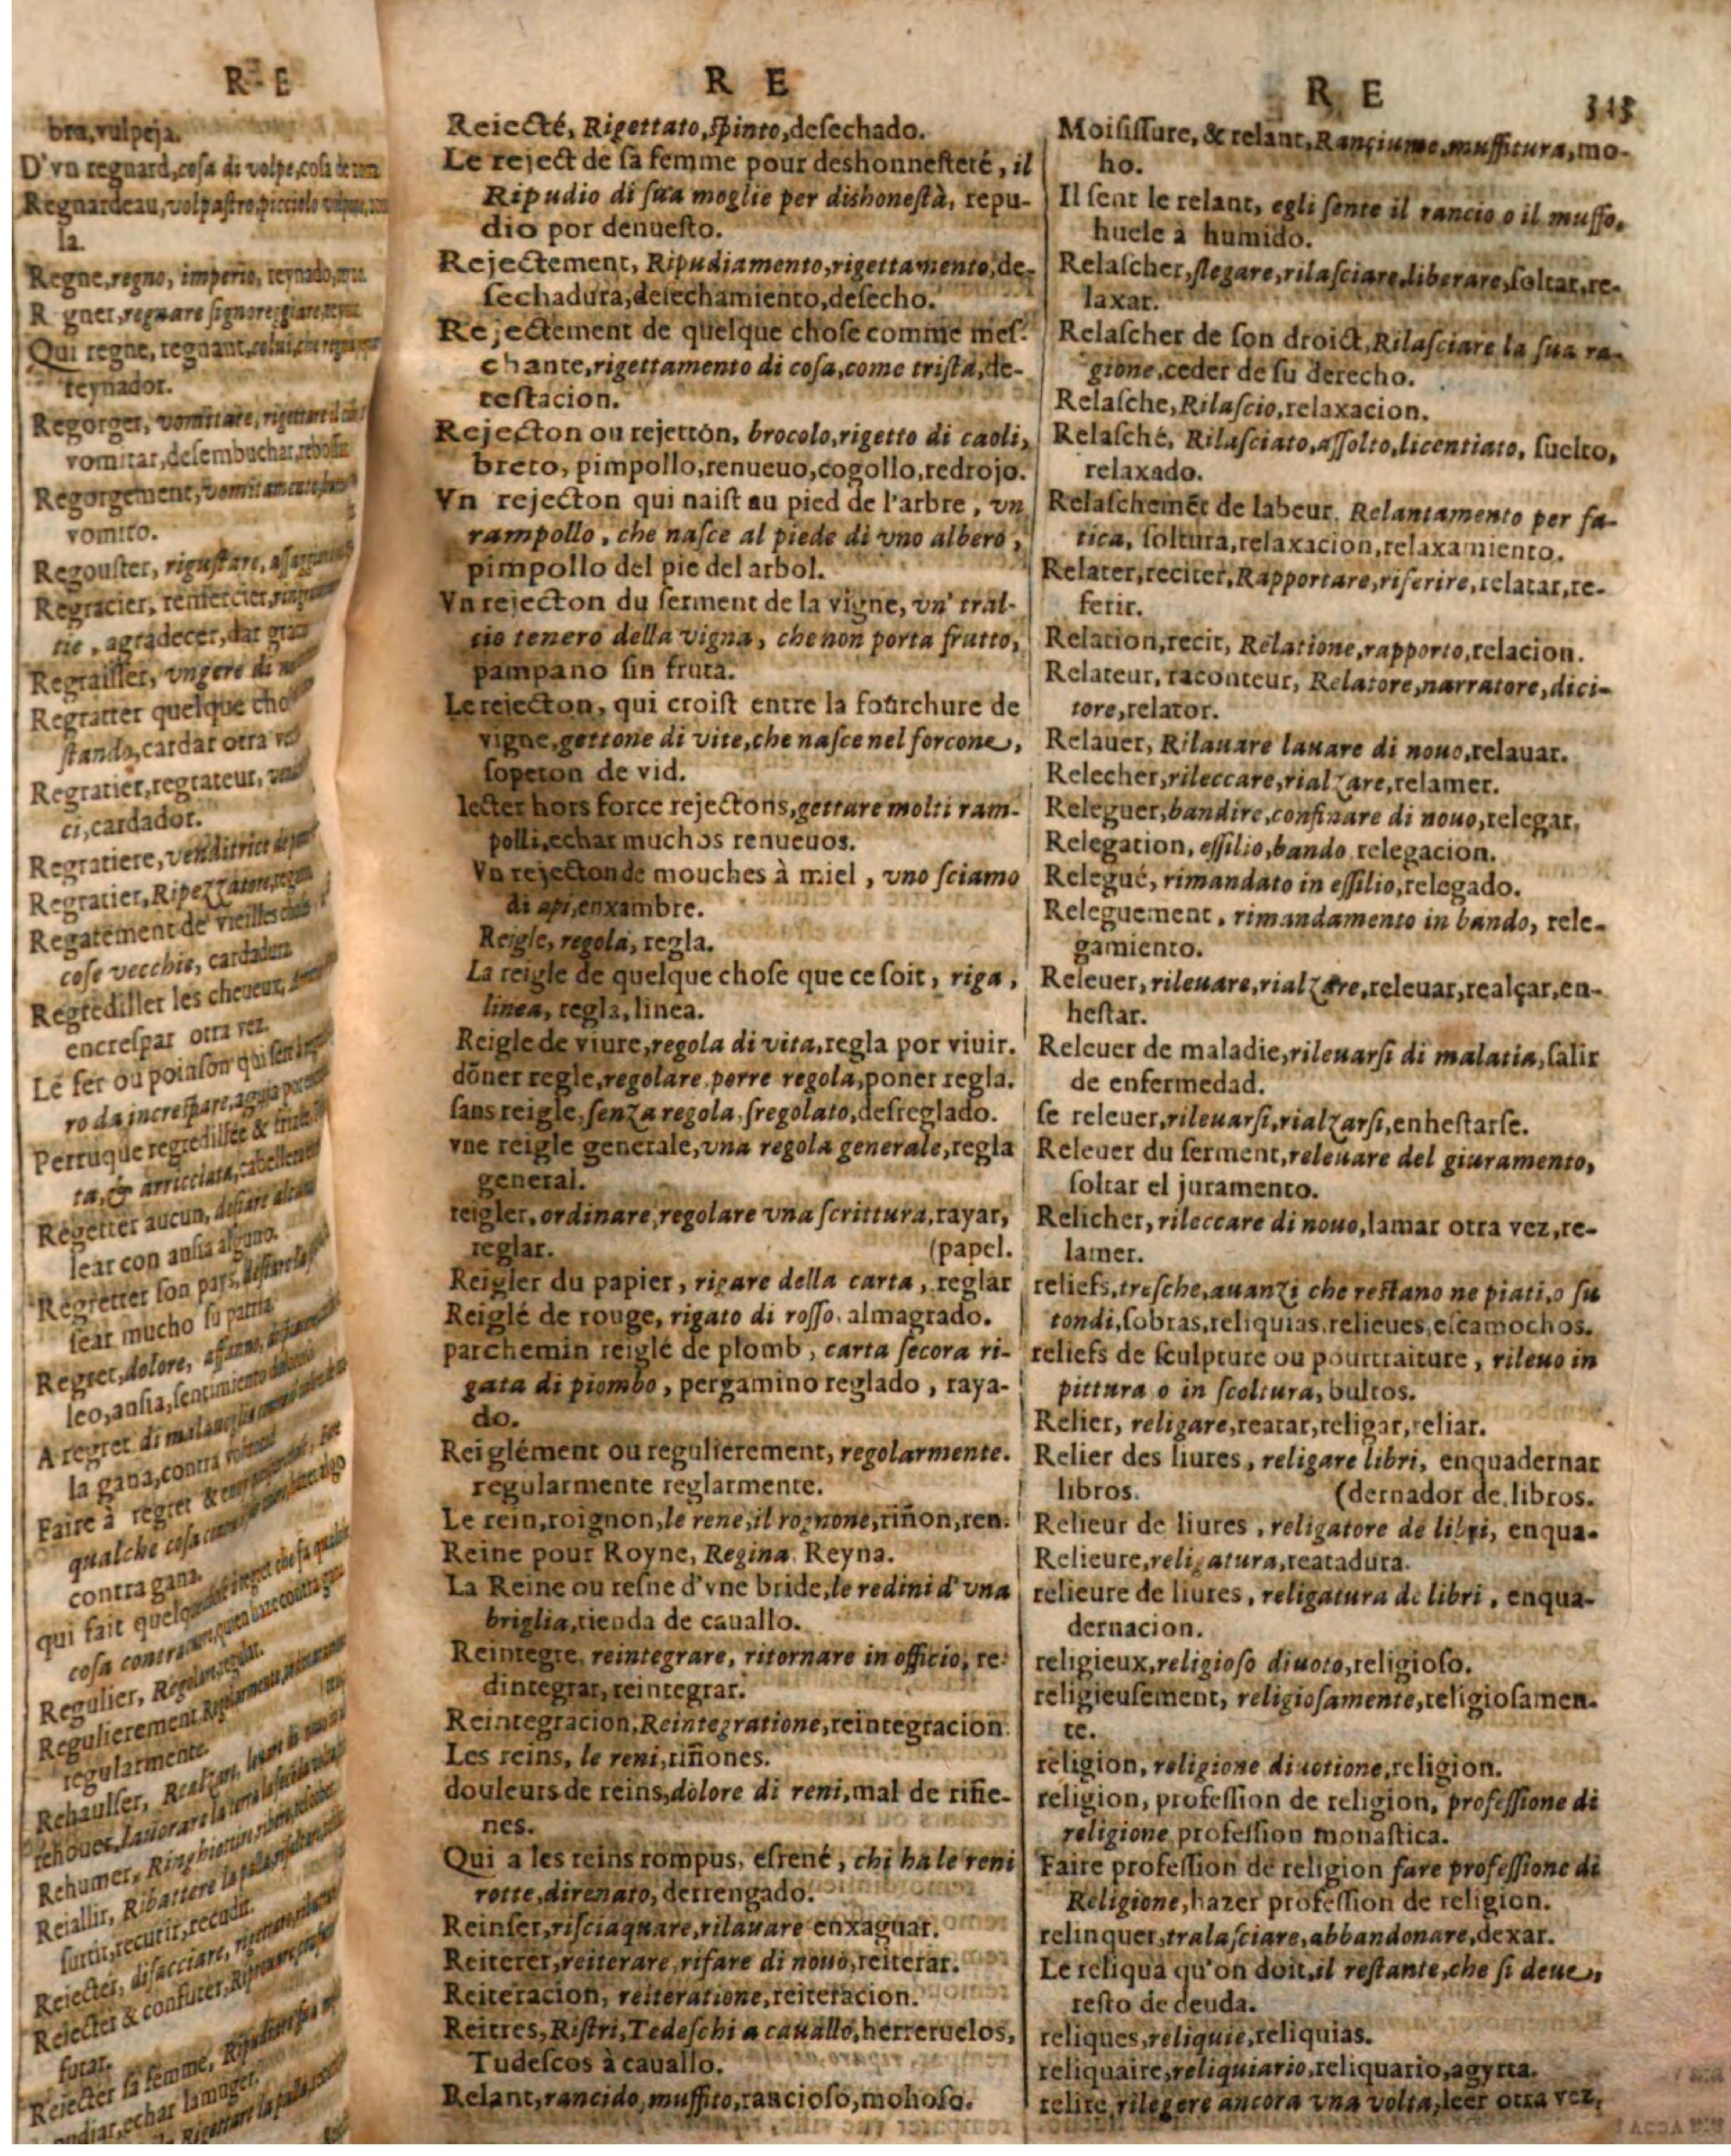 R E
bra, vulpeja.
D'vn regnard, cosa di volpe, cosa de
Regnardeau, volpastro, picciolo
la.
Regne, regno, imperio, reynado,
R gner, regnare signoreggiare,
Qui regne, regnant,
reynador.
Regorger, vomitare,
vomitar, desembuchar,
Regorgement,
vomito.
Regouster, rigustare,
Regracier, remercier,
tie, agradecer, dar
Regraisser, vngere di
Regratter quelque
ſtando, cardar otra
Regratier, regrateur,
ci, cardador.
Regratiere, venditrice
Regratier,
Regatement de vieilles
cose vecchie, cardadura
Regrediller les cheueux,
encreſpar otra vez.
Le fer ou poinſon qui
ro da increſpare,
Perruque regredillée &
ta, & arricciata,
Regetter aucun,
ſear con anſia alguno.
Regretter ſon pays,
ſear mucho ſu patria.
Regret, dolore,
ſeo, anſia, ſentimiento
A regret di
la gana, contra
Faire à regret &
qualche coſa
contra gana.
qui fait
coſa
Regulier,
Regulierement
regularmente.
Rehauſſer,
rehouer,
Rehumer,
Reiallir, Ribattere
ſurtir, recutir, recudir.
Reiecter, diſacciare,
Reiecter & confuter,
futar.
Reiecter ſa femme,
echar la muger.
R E
Reiecté, Rigettato, ſpinto, deſechado.
Le reject de ſa femme pour deshonneſteté, il
Ripudio di ſua moglie per dishoneſtà, repu-
dio por denueſto.
Rejectement, Ripudiamento, rigettamento, de-
ſechadura, deſechamiento, deſecho.
Rejectement de quelque choſe comme meſ-
chante, rigettamento di coſa, come triſta, de-
teſtacion.
Rejecton ou rejettõn, brocolo, rigetto di caoli,
breto, pimpollo, renueuo, cogollo, redrojo.
Vn rejecton qui naiſt au pied de l'arbre, vn
rampollo, che naſce al piede di vno albero,
pimpollo del pie del arbol.
Vn rejecton du ſerment de la vigne, vn' tral-
cio tenero della vigna, che non porta frutto,
pampano ſin fruta.
Le rejecton, qui croiſt entre la fourchure de
vigne, gettone di vite, che naſce nel forcone,
ſopeton de vid.
Iecter hors force rejectons, gettare molti ram-
polli, echar muchos renueuos.
Vn rejecton de mouches à miel, vno ſciamo
di api, enxambre.
Reigle, regola, regla.
La reigle de quelque choſe que ce ſoit, riga,
linea, regla, linea.
Reigle de viure, regola di vita, regla por viuir.
dõner regle, regolare, porre regola, poner regla.
ſans reigle, ſenza regola, ſregolato, deſreglado.
vne reigle generale, vna regola generale, regla
general.
reigler, ordinare, regolare vna ſcrittura, rayar,
reglar. (papel.
Reigler du papier, rigare della carta, reglar
Reiglé de rouge, rigato di roſſo, almagrado.
parchemin reiglé de plomb, carta ſecora ri-
gata di piombo, pergamino reglado, raya-
do.
Reiglément ou regulierement, regolarmente.
regularmente reglarmente.
Le rein, roignon, le rene, il rognone, riñon, ren.
Reine pour Royne, Regina. Reyna.
La Reine ou reſne d'vne bride, le redini d'vna
briglia, rienda de cauallo.
Reintegre, reintegrare, ritornare in officio, re-
dintegrar, reintegrar.
Reintegracion, Reintegratione, reintegracion.
Les reins, le reni, riñones.
douleurs de reins, dolore di reni, mal de riñe-
nes.
Qui a les reins rompus, eſrené, chi ha le reni
rotte, direnato, derrengado.
Reinſer, riſciaquare, rilauare enxaguar.
Reiterer, reiterare, rifare di nouo, reiterar.
Reiteracion, reiteratione, reiteracion.
Reitres, Riſtri, Tedeſchi a cauallo, herreruelos,
Tudeſcos à cauallo.
Relant, rancido, muffito, rancioſo, mohoſo.
R E 315
Moiſiſſure, & relant, Ranciume, mufficura, mo-
ho.
Il ſent le relant, egli ſente il rancio o il muffo,
huele à humido.
Relaſcher, ſlegare, rilaſciare, liberare, ſoltar, re-
laxar.
Relaſcher de ſon droict, Rilaſciare la ſua ra-
gione, ceder de ſu derecho.
Relaſche, Rilaſcio, relaxacion.
Relaſché, Rilaſciato, aſſolto, licentiato, ſuelto,
relaxado.
Relaſchemẽt de labeur, Relantamento per fa-
tica, ſoltura, relaxacion, relaxamiento.
Relater, reciter, Rapportare, riferire, relatar, re-
ferir.
Relation, recit, Relatione, rapporto, relacion.
Relateur, raconteur, Relatore, narratore, dici-
tore, relator.
Relauer, Rilauare lauare di nouo, relauar.
Relecher, rileccare, rialzare, relamer.
Releguer, bandire, confinare di nouo, relegar,
Relegation, eſſilio, bando relegacion.
Relegué, rimandato in eſſilio, relegado.
Releguement, rimandamento in bando, rele-
gamiento.
Releuer, rileuare, rialzare, releuar, realçar, en-
heſtar.
Releuer de maladie, rileuarſi di malatia, ſalir
de enfermedad.
ſe releuer, rileuarſi, rialzarſi, enheſtarſe.
Releuer du ſerment, releuare del giuramento,
ſoltar el juramento.
Relicher, rileccare di nouo, lamar otra vez, re-
lamer.
reliefs, treſche, auanzi che reſtano ne piati, o ſu
tondi, ſobras, reliquias, relieues, eſcamochos.
reliefs de ſculpture ou pourtraiture, rileuo in
pittura o in ſcoltura, bultos.
Relier, religare, reatar, religar, reliar.
Relier des liures, religare libri, enquadernar
libros. (dernador de libros.
Relieur de liures, religatore de libri, enqua-
Relieure, religatura, reatadura.
relieure de liures, religatura de libri, enqua-
dernacion.
religieux, religioſo diuoto, religioſo.
religieuſement, religioſamente, religioſamen-
te.
religion, religione diuotione, religion.
religion, profeſſion de religion, profeſſione di
religione profeſſion monaſtica.
Faire profeſſion de religion fare profeſſione di
Religione, hazer profeſſion de religion.
relinquer, tralaſciare, abbandonare, dexar.
Le reliqua qu'on doit, il reſtante, che ſi deue,
reſto de deuda.
reliques, reliquie, reliquias.
reliquaire, reliquiario, reliquario, agyrta.
relire, rilegere ancora vna volta, leer otra vez,